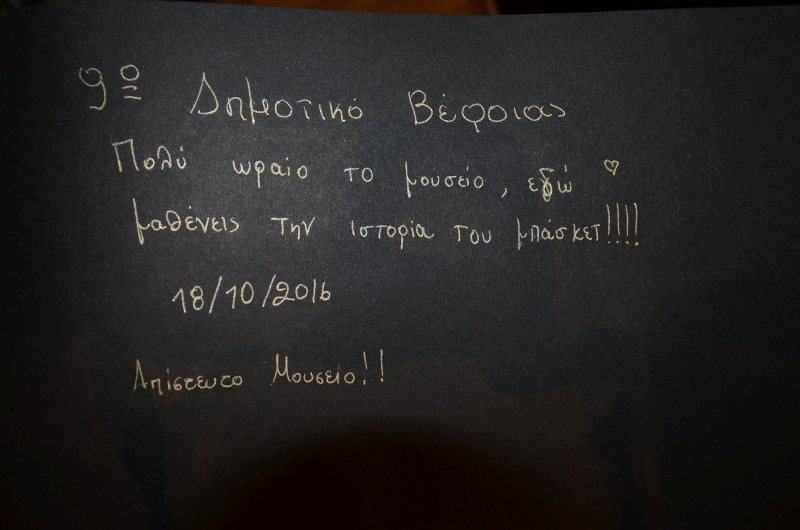 9º Δημοτικό Βέροιας
Πολύ ωραίο το μουσείο, εδώ ♡
μαθένεις την ιστορία του μπάσκετ!!!!
18/10/2016
Απίστευτο Μουσείο!!